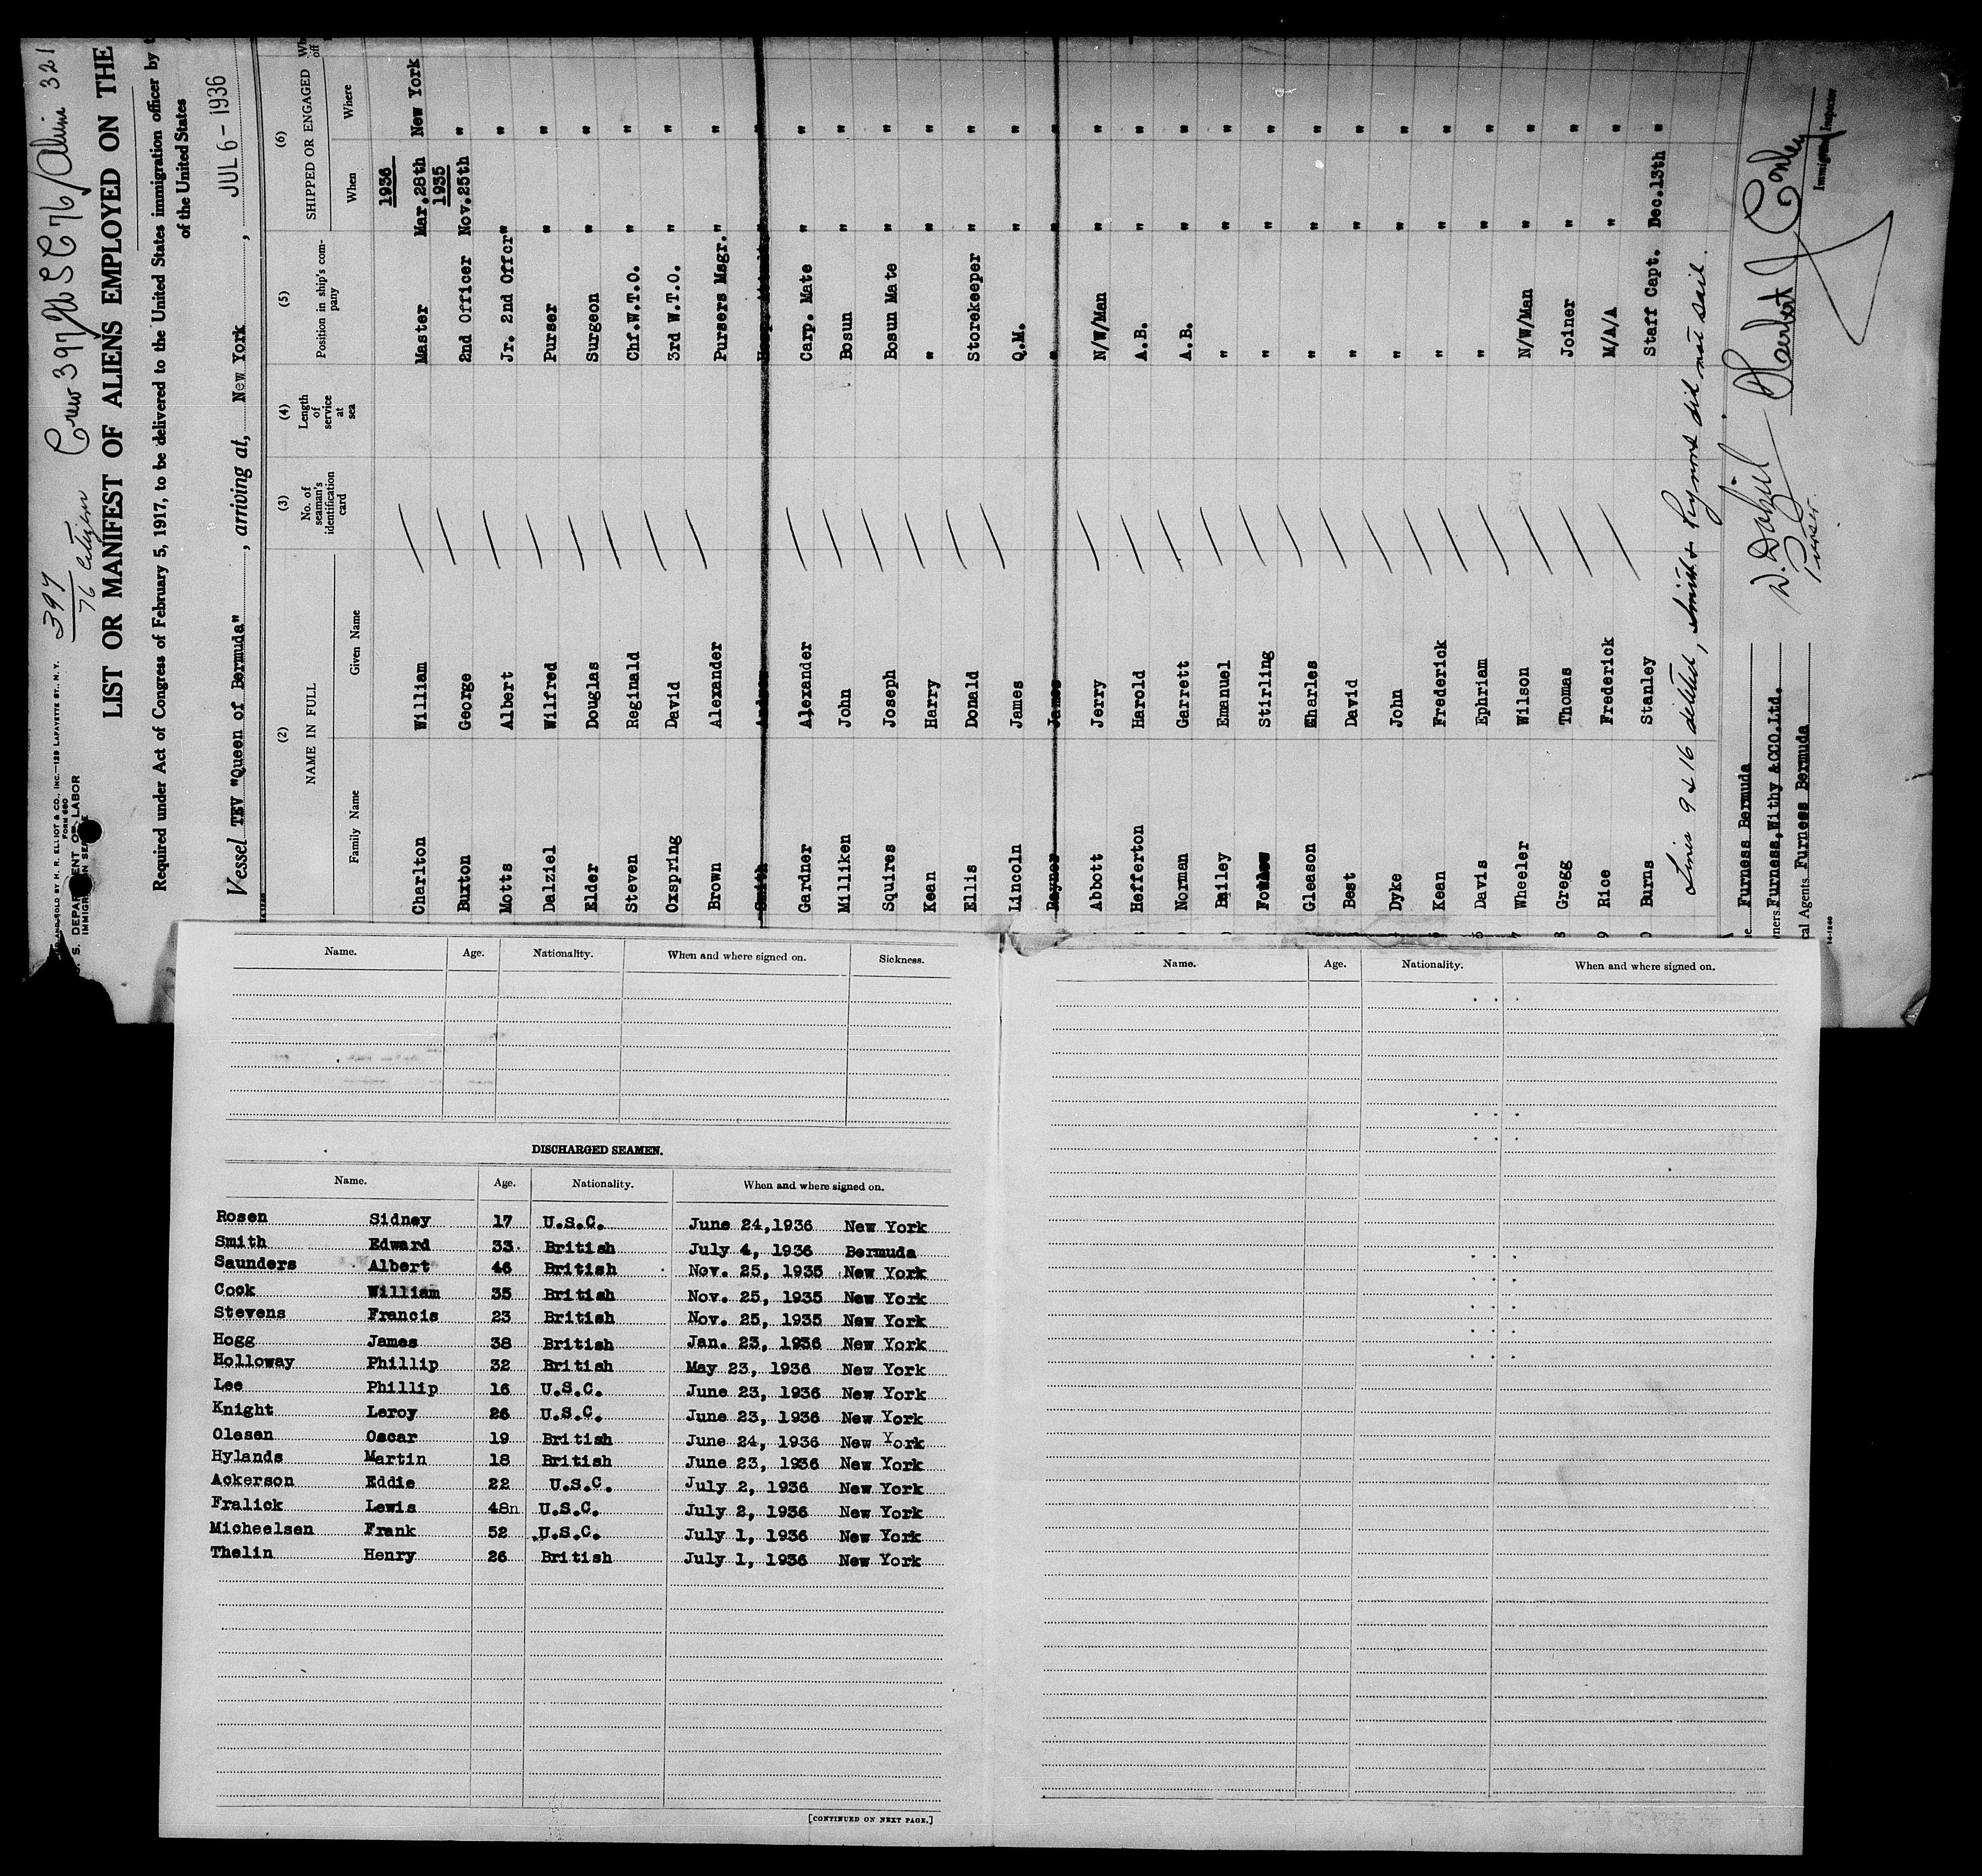 397
76 Citizen
Crew 397 76 USC 76 / Aliens 321
FORM 680
U. S. DEPARTMENT OF LABOR
LIST OR MANIFEST OF ALIENS EMPLOYED ON THE
Required under Act of Congress of February 5, 1917, to be delivered to the United States immigration officer by
of the United States
Vessel TEV "Queen of Bermuda", arriving at, New York, JUL 6 - 1936
(2) (3) (4) (5) (6)
NAME IN FULL No. of seaman's identification card Length of service at sea Position in ship's company SHIPPED OR ENGAGED
Family Name Given Name When Where
1936
Charlton William Master Mar.28th New York
1935
Buxton George 2nd Officer Nov.25th "
Motts Albert Jr. 2nd Offcr " "
Dalziel Wilfred Purser " "
Elder Douglas Surgeon " "
Steven Reginald Chf.W.T.O. " "
Oxspring David 3rd W.T.O. " "
Brown Alexander Pursers Msgr. " "
Smith Andrew " "
Gardner Alexander Carp. Mate " "
Milliken John Bosun " "
Squires Joseph Bosun Mate " "
Kean Harry " " "
Ellis Donald Storekeeper " "
Lincoln James Q.M. " "
Raynor James " " "
Abbott Jerry N/W/Man " "
Hefferton Harold A.B. " "
Norman Garrett A.B. " "
Bailey Emanuel " " "
Stirling " " "
Gleason Charles " " "
Best David " " "
Dyke John " " "
Kean Frederick " " "
Davis Ephriam " " "
Wheeler Wilson N/W/Man " "
Gregg Thomas Joiner " "
Rice Frederick M/A/A " "
Burns Stanley Staff Capt. Dec.13th "
Lines 9 & 16 deleted, Smith & Reynor did not sail.
Furness Bermuda
Furness,Withy &CCO.Ltd.
Agents Furness Bermuda
W. Dalziel
Purser.
Herbert J Conley
Immigrant Inspector
Name. Age. Nationality. When and where signed on. Sickness.
DISCHARGED SEAMEN.
Name. Age. Nationality. When and where signed on.
Rosen Sidney 17 U.S.C. June 24,1936 New York
Smith Edward 33 British July 4, 1936 Bermuda
Saunders Albert 46 British Nov. 25, 1935 New York
Cook William 35 British Nov. 25, 1935 New York
Stevens Francis 23 British Nov. 25, 1935 New York
Hogg James 38 British Jan. 23, 1936 New York
Holloway Phillip 32 British May 23, 1936 New York
Lee Phillip 16 U.S.C. June 23, 1936 New York
Knight Leroy 26 U.S.C. June 23, 1936 New York
Olesen Oscar 19 British June 24, 1936 New York
Hylands Martin 18 British June 23, 1936 New York
Ackerson Eddie 22 U.S.C. July 2, 1936 New York
Fralick Lewis 48n U.S.C. July 2, 1936 New York
Micheelsen Frank 52 U.S.C. July 1, 1936 New York
Thelin Henry 26 British July 1, 1936 New York
[CONTINUED ON NEXT PAGE.]
Name. Age. Nationality. When and where signed on.